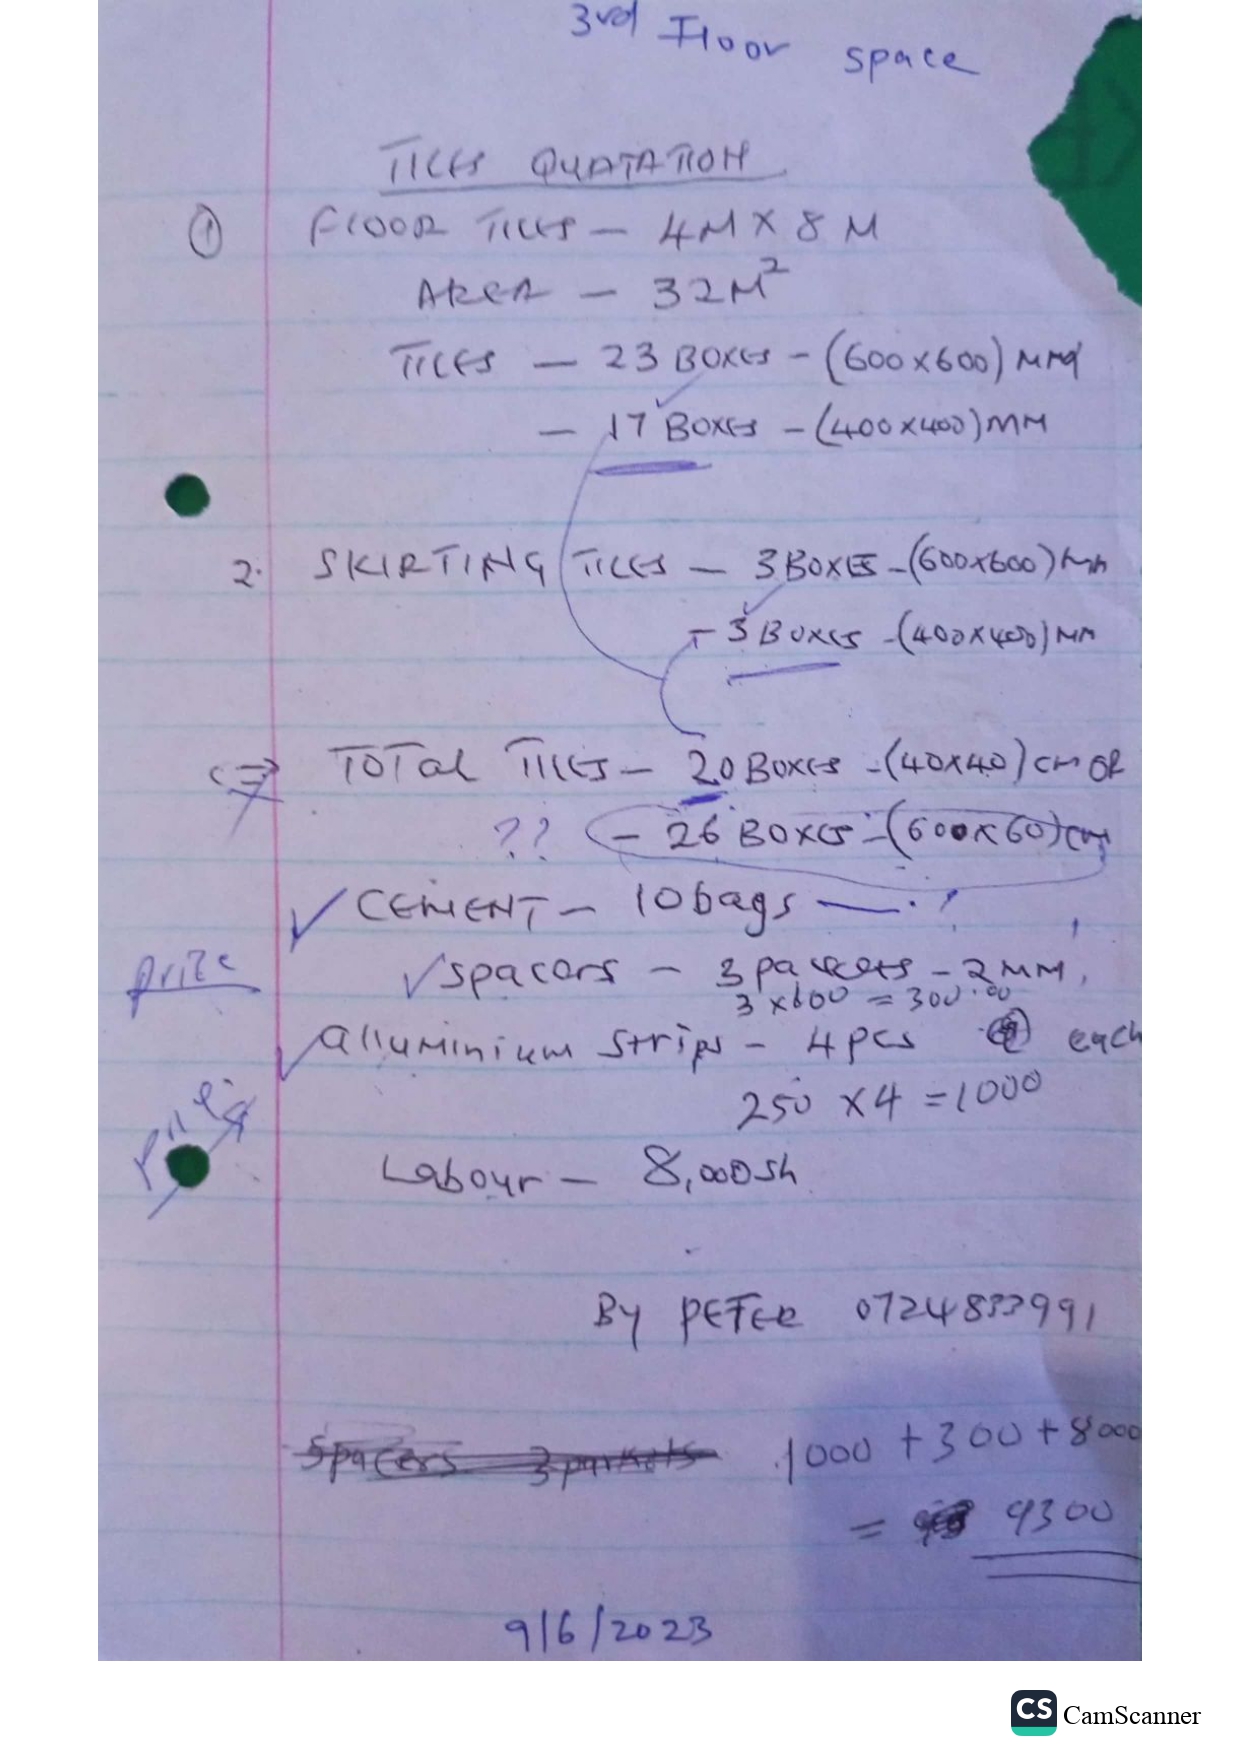 3rd Floor space
TILES QUATATION
① FLOOR TILES - 4M X 8M
AREA - 32M²
TILES - 23 BOXES - (600x600) MM
- 17 BOXES - (400x400) MM
2. SKIRTING TILES - 3 BOXES - (600x600) MM
- 3 BOXES - (400x400) MM
TOTAL TILES - 20 BOXES - (40x40) CM OR
?? - 26 BOXES - (600x60) cm
✓ CEMENT - 10 bags - ?
✓ spacers - 3 packets - 2MM,
prize
3 x 100 = 300.00
✓ alluminium strips - 4 pcs @ each
250 x 4 = 1000
Labour - 8,000 sh
By PETER 0724833991
spacers 3 packets
1000 + 300 + 8000
= 9300
9/6/2023
CS CamScanner